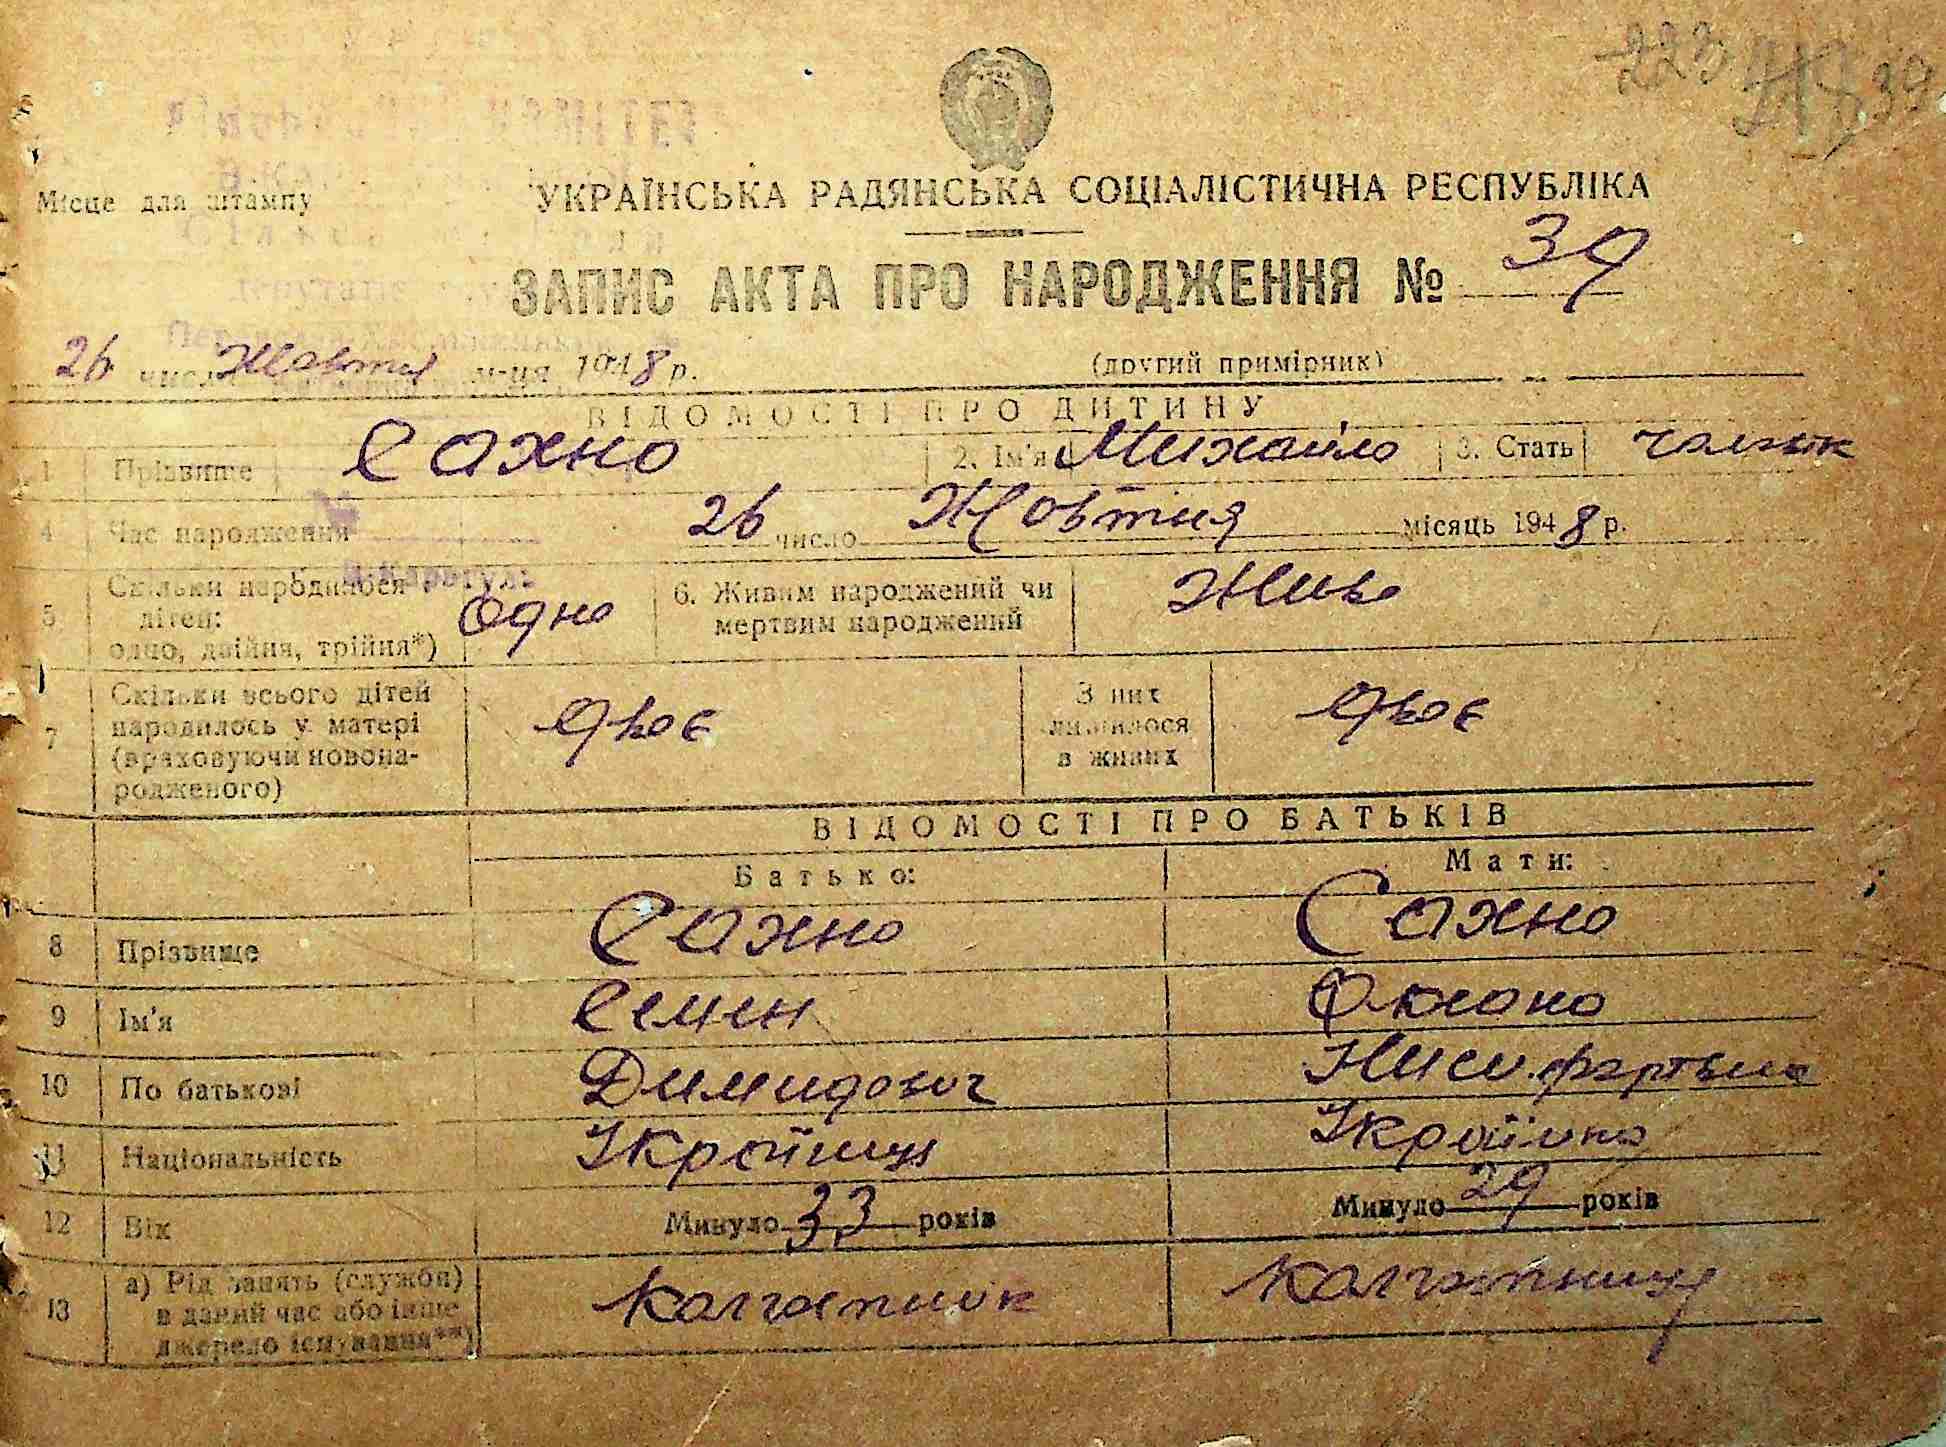 223
39
Місце для штампу
УКРАЇНСЬКА РАДЯНСЬКА СОЦІАЛІСТИЧНА РЕСПУБЛІКА
ЗАПИС АКТА ПРО НАРОДЖЕННЯ № 39
26 числа Жовтня м-ця 1948 р. (другий примірник)
ВІДОМОСТІ ПРО ДИТИНУ
1 Прізвище Сахно 2. Ім'я Михайло 3. Стать
4 Час народження 26 число Жовтня місяць 1948 р.
5 Скільки народилося дітей: одно, двійня, трійня*) Одно 6. Живим народжений чи мертвим народжений Живе
7 Скільки всього дітей народилось у матері (враховуючи новонародженого) Двоє З них лишилося в живих Двоє
ВІДОМОСТІ ПРО БАТЬКІВ
Батько: Мати:
8 Прізвище Сахно Сахно
9 Ім'я Семен Оксана
10 По батькові Димидович
11 Національність Українець Українка
12 Вік Минуло 33 років Минуло 29 років
13 а) Рід занять (служби) в даний час або інше джерело існування**) Колгоспник Колгоспниця